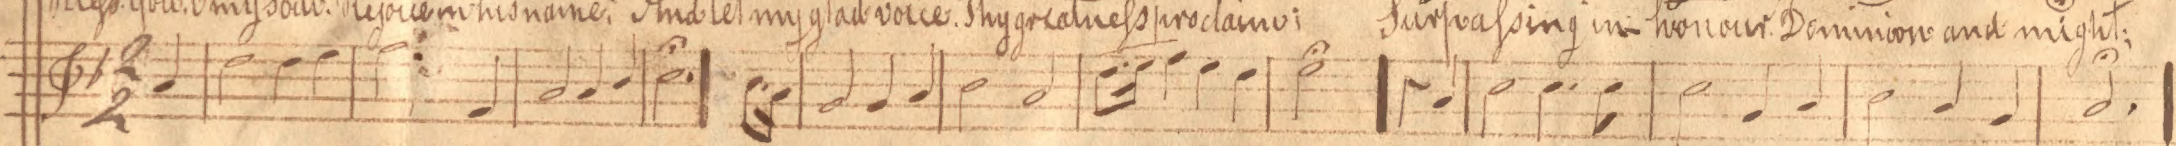 my soul. Rejoice in his name; And let my glad voice. Thy greatness proclaim; Surpassing in honour. Dominion and might;
2
2